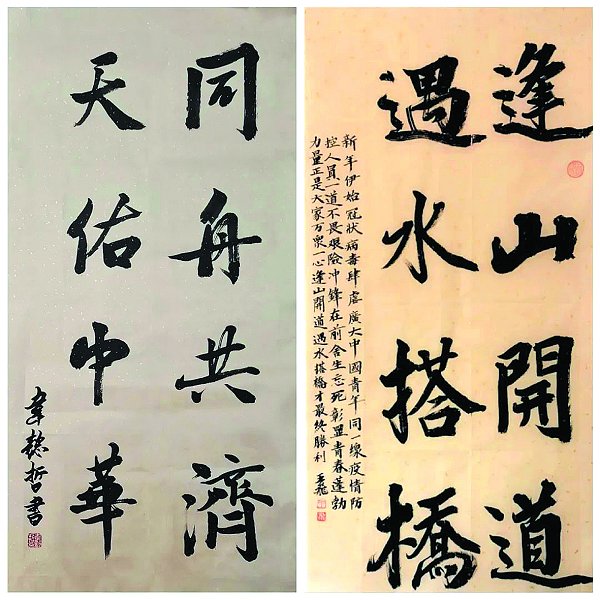 同舟共濟
天佑中華
韋懿哲書
逢山開道
遇水搭橋
新年伊始冠状病毒肆虐廣大中國青年同一線疫情防
控人員一道不畏艱險冲鋒在前舍生忘死彰显青春蓬勃
力量正是大家万衆一心逢山開道遇水搭橋才最終勝利